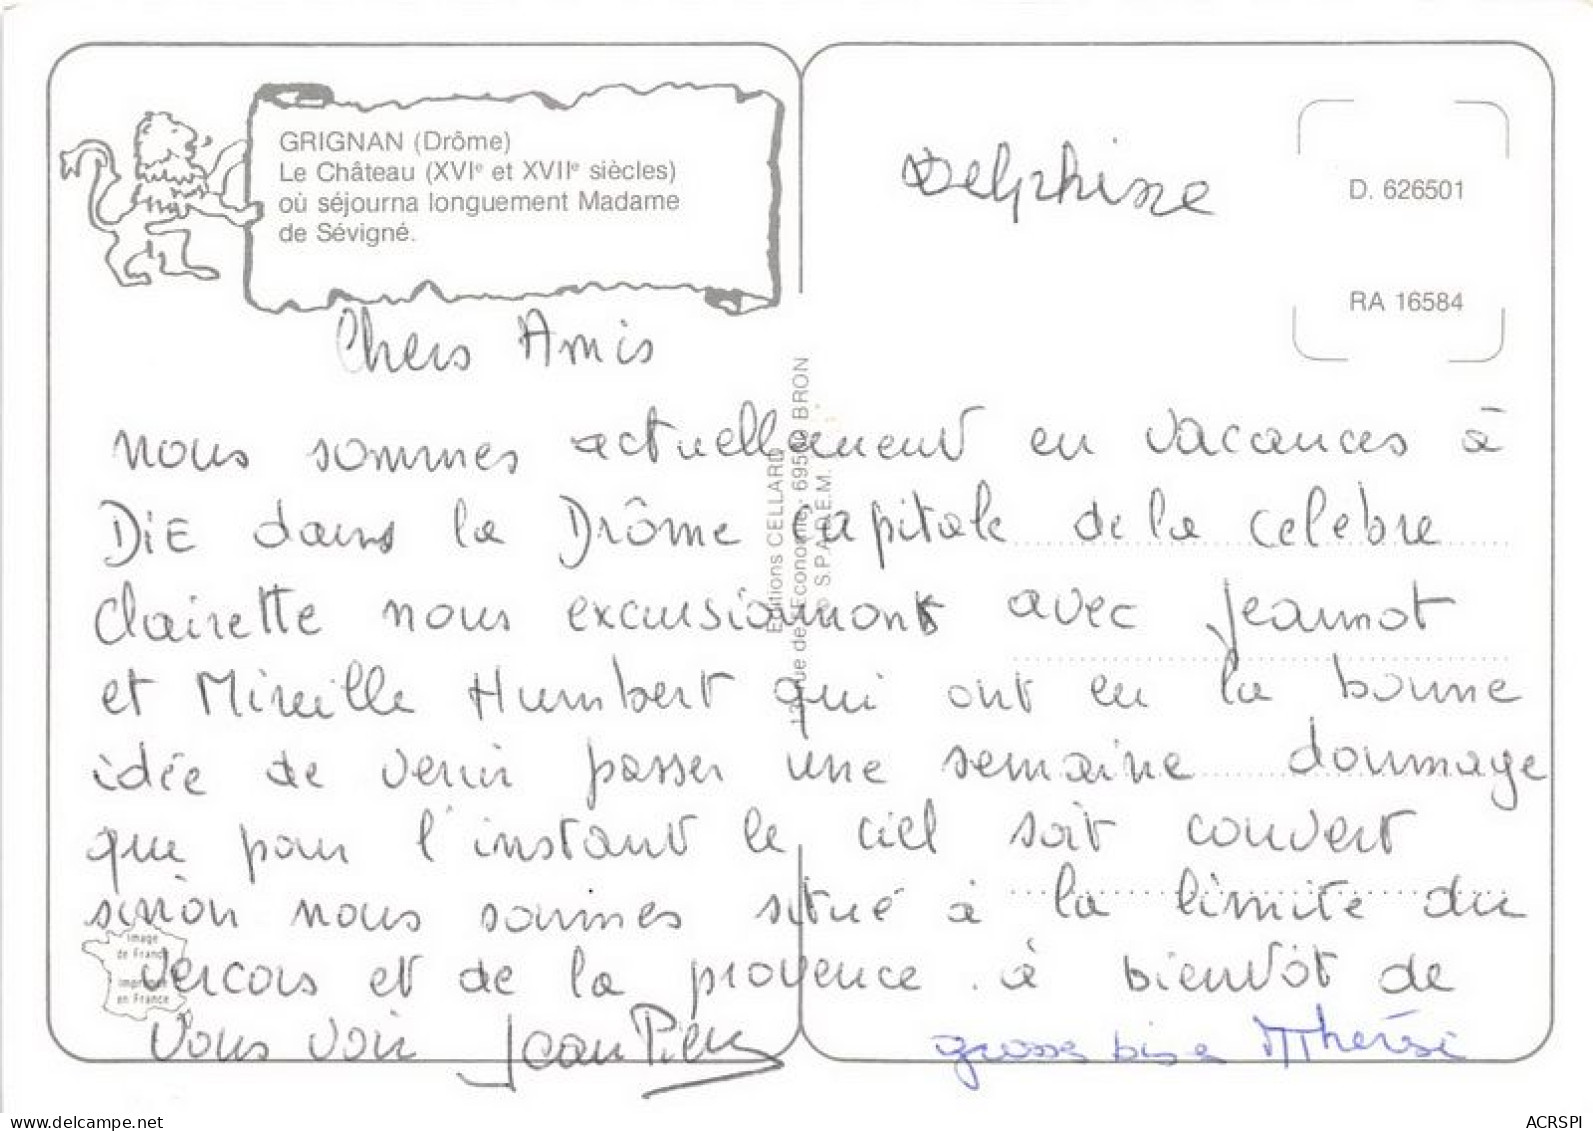 GRIGNAN (Drôme)
Le Château (XVIe et XVIIe siècles)
où séjourna longuement Madame
de Sévigné.
Delphine
D. 626501
RA 16584
Chers Amis
nous sommes actuellement en vacances à
DiE dans la Drôme capitale de la celèbre
Clairette nous excursionnons avec Jeannot
et Mireille Humbert qui ont eu la bonne
idée de venir passer une semaine dommage
que pour l'instant le ciel soit couvert
sinon nous sommes situé à la limite du
vercors et de la provence. à bientôt de
vous voir Jean Pierre
grosse bise M Thérèse
Editions CELLARD
rue de l'Economie, 69500 BRON
© S.P.A.D.E.M.
Image
de France
imprimé
en France
www.delcampe.net
ACRSPI